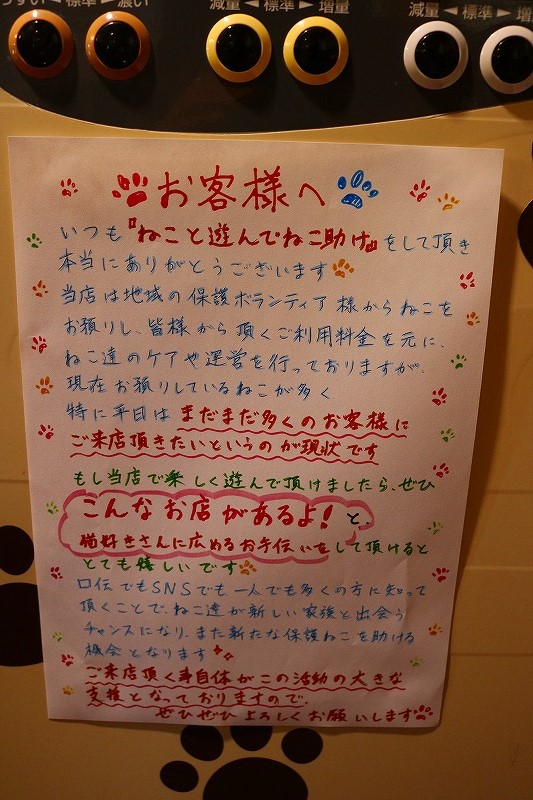 うすい ◄ 標準 ► 濃い
減量 ◄ 標準 ► 増量
減量 ◄ 標準 ► 増
お客様へ
いつも『ねこと遊んでねこ助け』をして頂き
本当にありがとうございます
当店は地域の保護ボランティア様からねこを
お預りし、皆様から頂くご利用料金を元に、
ねこ達のケアや運営を行っておりますが、
現在お預りしているねこが多く
特に平日はまだまだ多くのお客様に
ご来店頂きたいというのが現状です
もし当店で楽しく遊んで頂けましたら、ぜひ
こんなお店があるよ!と、
猫好きさんに広めるお手伝いをして頂けると
とても嬉しいです
口伝でもSNSでも一人でも多くの方に知って
頂くことで、ねこ達が新しい家族と出会う
チャンスになり、また新たな保護ねこを助ける
機会となります
ご来店頂く事自体がこの活動の大きな
支援となっておりますので、
ぜひぜひよろしくお願いします